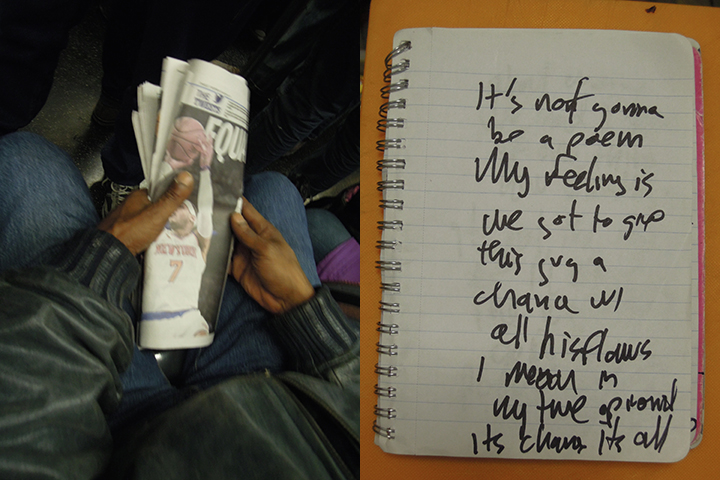 THE
TWEETS
EQU
7
It's not gonna
be a poem
My feeling is
we got to give
this guy a
chance w/
all his flaws
I mean in
my
its chance its all